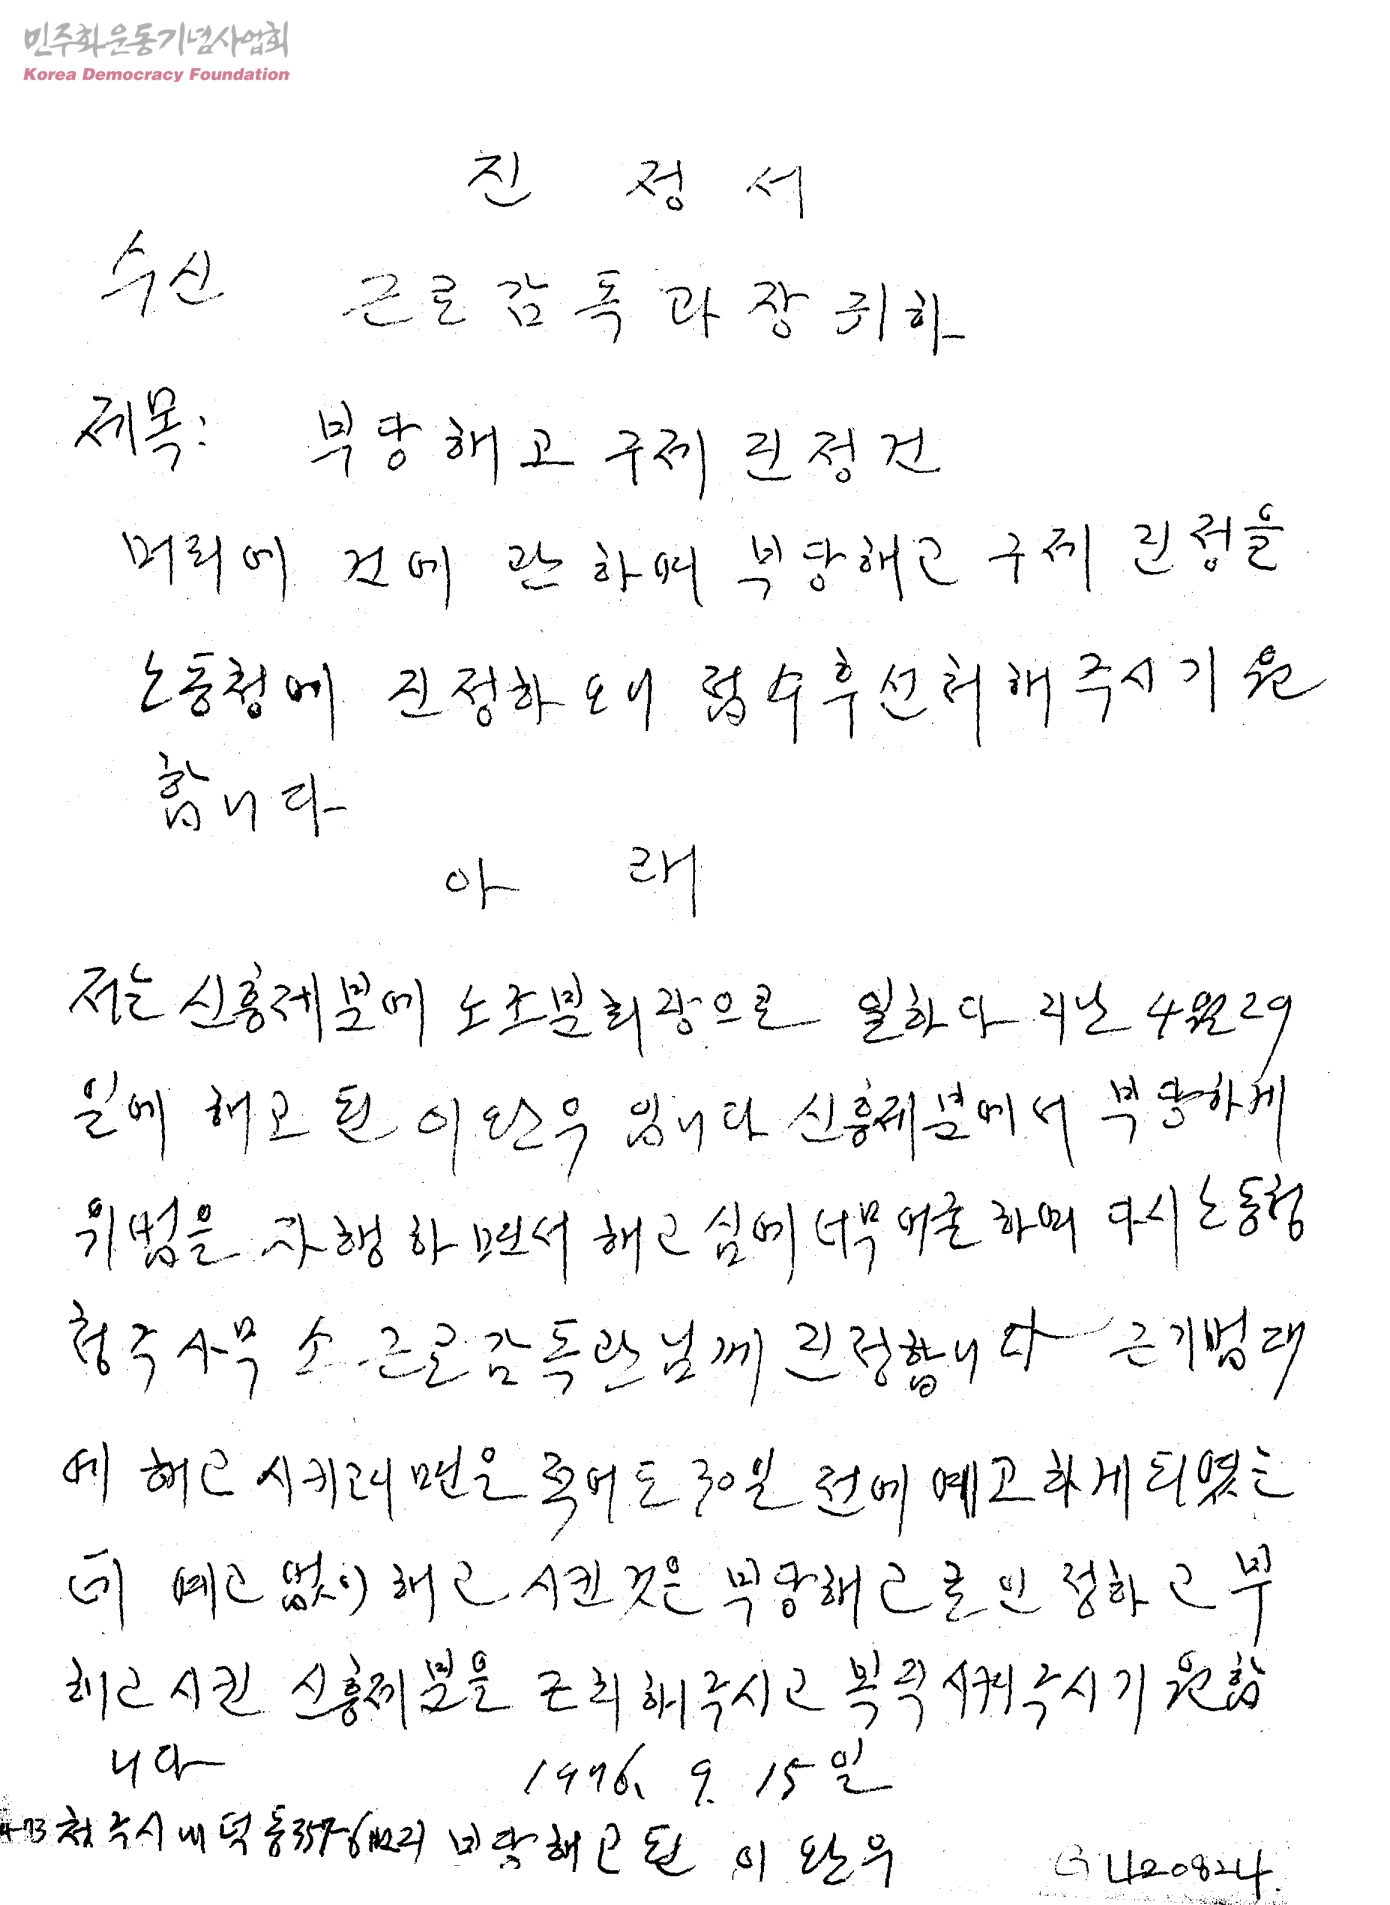 민주화운동기념사업회
Korea Democracy Foundation
진 정 서
수신 근로감독과장 귀하
제목: 부당해고 구제 진정건
머리에 건에 관하여 부당해고 구제 진정을
노동청에 진정하오니 접수후선처해주시기 원
합니다
아 래
저는 신흥제분에 노조분회장으로 일하다 지난 4월29
일에 해고된 이완우 입니다 신흥제분에서 부당하게
위법을 자행하면서 해고 심에 너무 억울하여 다시 노동청
청주사무소 근로감독관님께 진정합니다 근기법대
에 해고 시키려면은 적어도 30일 전에 예고하게 되였는
데 예고 없이 해고 시킨것은 부당해고를 인정하고 부
해고 시킨 신흥제분을 조처해주시고 복직시켜주시기 원합
니다 1976. 9. 15일
청주시 내덕동 부당해고된 이완우
420824.